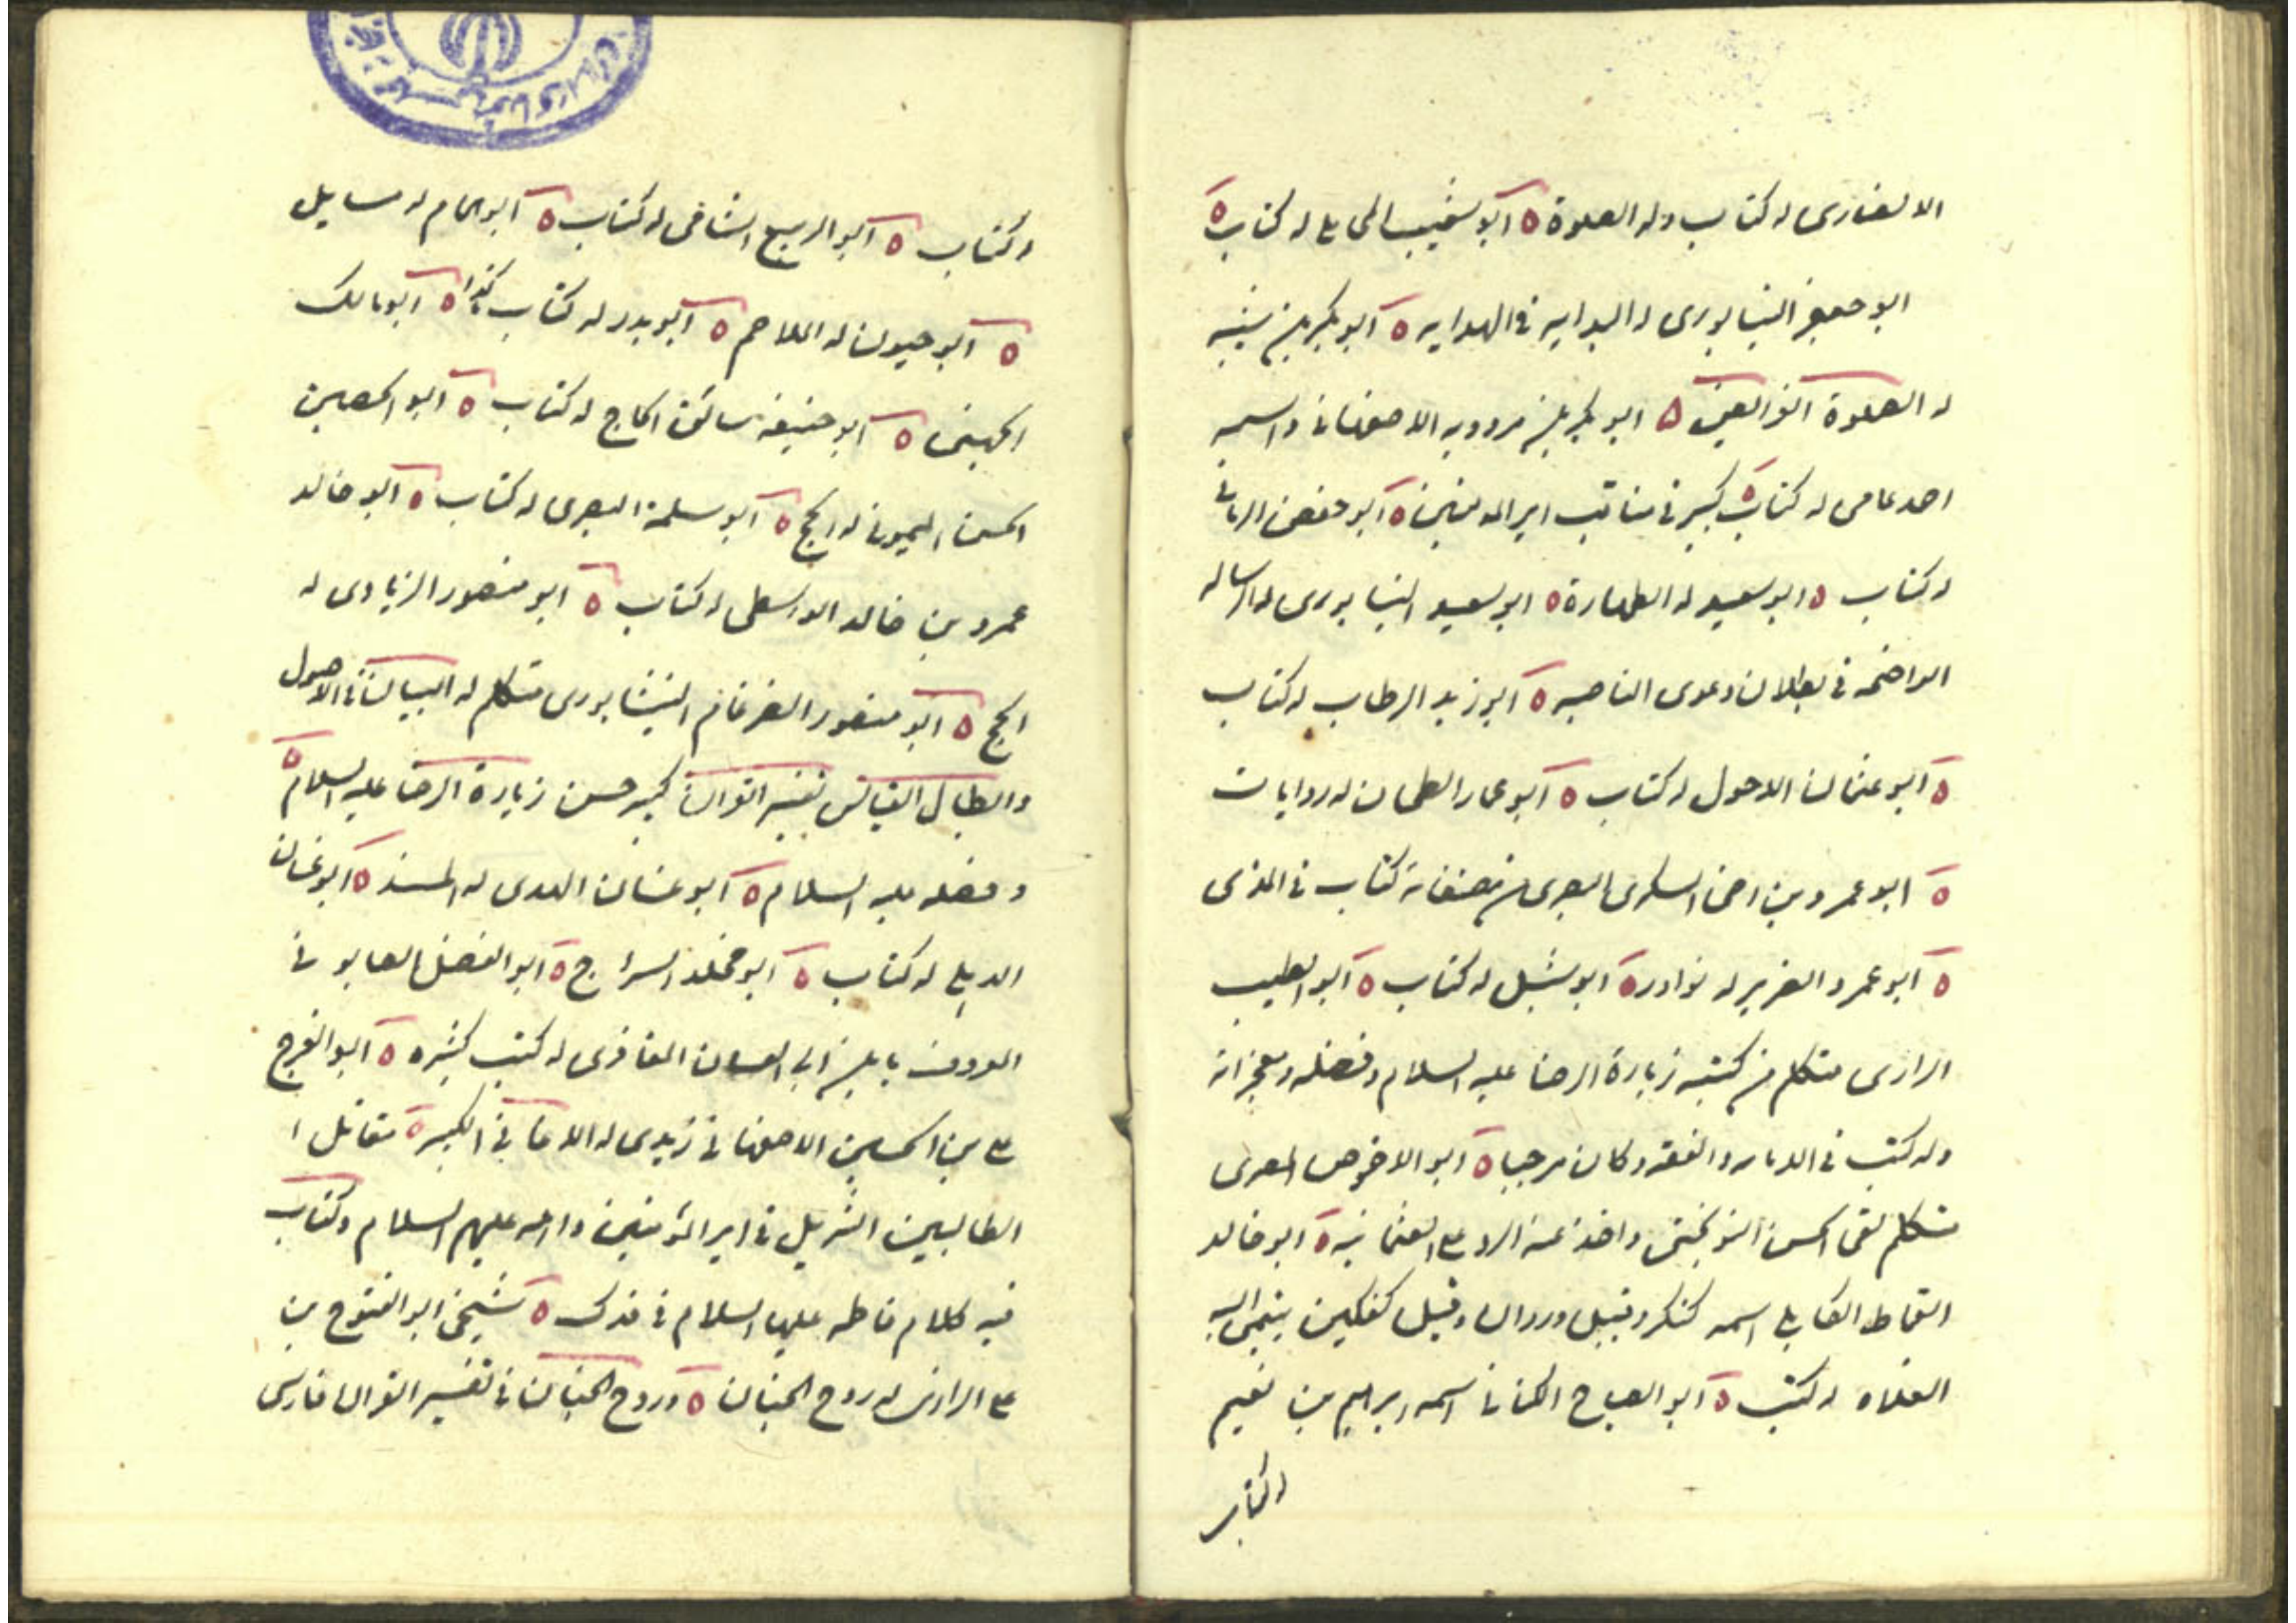 الانصارى له كتاب وله الصلوة ه ابو شعيب المحاملى له كتاب ه
ابو جعفر النيسابورى له البداية فى الهداية ه ابو بكر بن شيبه
له الصلوة الفرايض ه ابو بكر بن مردويه الاصفهانى واسمه
احمد عامى له كتاب كبير فى مناقب امير المومنين ه ابو حفص الرمانى
له كتاب ه ابو سعيد له الطهارة ه ابو سعيد النيسابورى له الرسالة
الواضحة فى بطلان دعوى الناصبه ه ابو زيد الرطاب له كتاب
ه ابو عثمان الاحول له كتاب ه ابو عمار الطحان له روايات
ه ابو عمرو بن اخى السكرى البصرى من مصنفاته كتاب فى المذى
ه ابو عمرو الضرير له نوادر ه ابو شبل له كتاب ه ابو الطيب
الرازى متكلم من كتبه زيارة الرضا عليه السلام وفضله ومعجزاته
وله كتب فى الامامه والفقه وكان مرجيا ه ابو الاخوص المصرى
متكلم لقى الحسن النوبختى واخذ عنه الرد على العثمانيه ه ابو خالد
القماط الكابلى اسمه كنكر وقيل وردان وقيل كفكين ينتمى اليه
الغلاة له كتب ه ابو الصباح الكنانى اسمه ابراهيم بن نعيم
له كتاب
له كتاب ه ابو الربيع الشامى له كتاب ه ابو همام له مسايل
ه ابو حيون له الملاحم ه ابو بدر له كتاب كذا ه ابو مالك
الجهنى ه ابو حنيفه سائق الحاج له كتاب ه ابو الحصين
الحسن الميمونى له الحج ه ابو سلمة البصرى له كتاب ه ابو خالد
عمرو بن خالد الواسطى له كتاب ه ابو منصور الزيادى له
الحج ه ابو منصور الصرغام النيشابورى متكلم له البيان فى الاصول
وابطال القياس تفسير القران كبير حسن زيارة الرضا عليه السلام ه
وفضله عليه السلام ه ابو غسان الهدى له المسند ه ابو غسان
الديلى له كتاب ه ابو مخلد السراج ه ابو الفضل الصابونى
المعروف بابن ابى العساف المغافرى له كتب كثيره ه ابو الفرج
على بن الحسين الاصفهانى زيدى له الاغانى الكبير ه مقاتل ا
الطالبيين التنزيل فى امير المؤمنين واله عليهم السلام وكتاب
فيه كلام فاطمه عليها السلام فى فدك ه شيخى ابو الفتوح بن
على الرازى له روح الجنان ه وروح الجنان فى تفسير القران فارسى